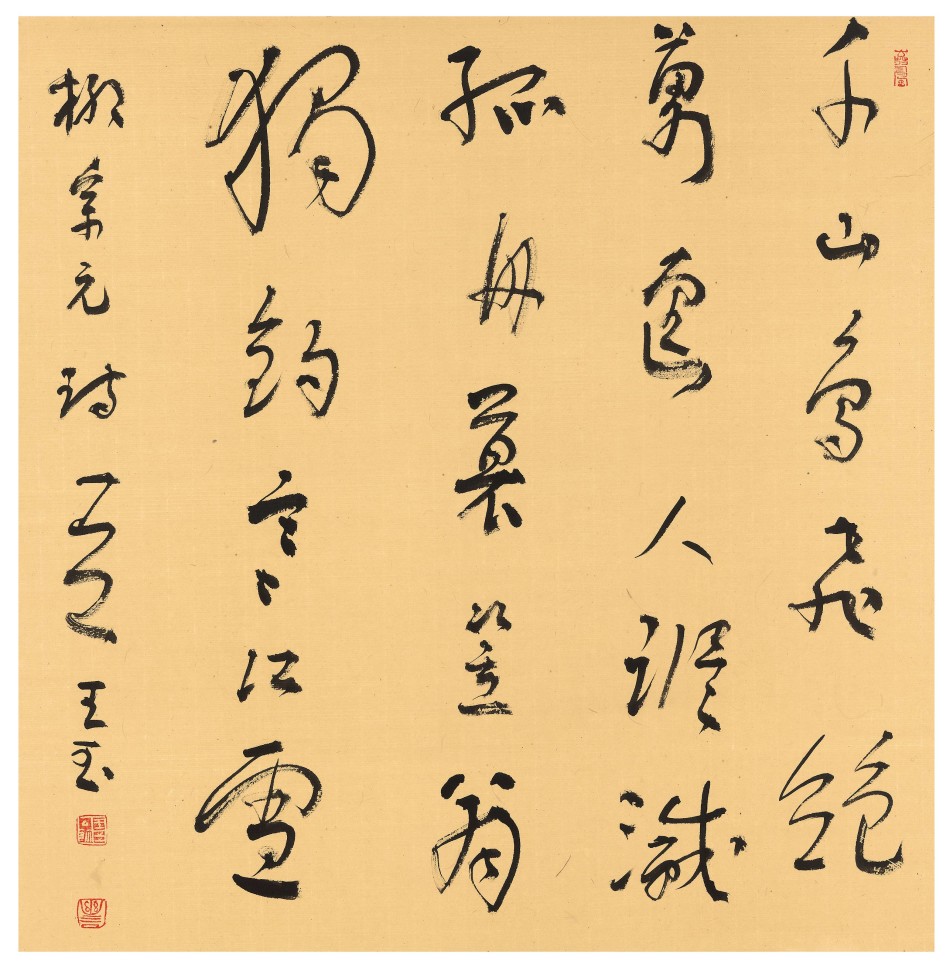 千山鳥飛絕
萬逕人蹤滅
孤舟蓑笠翁
獨釣寒江雪
柳宗元詩 王玉